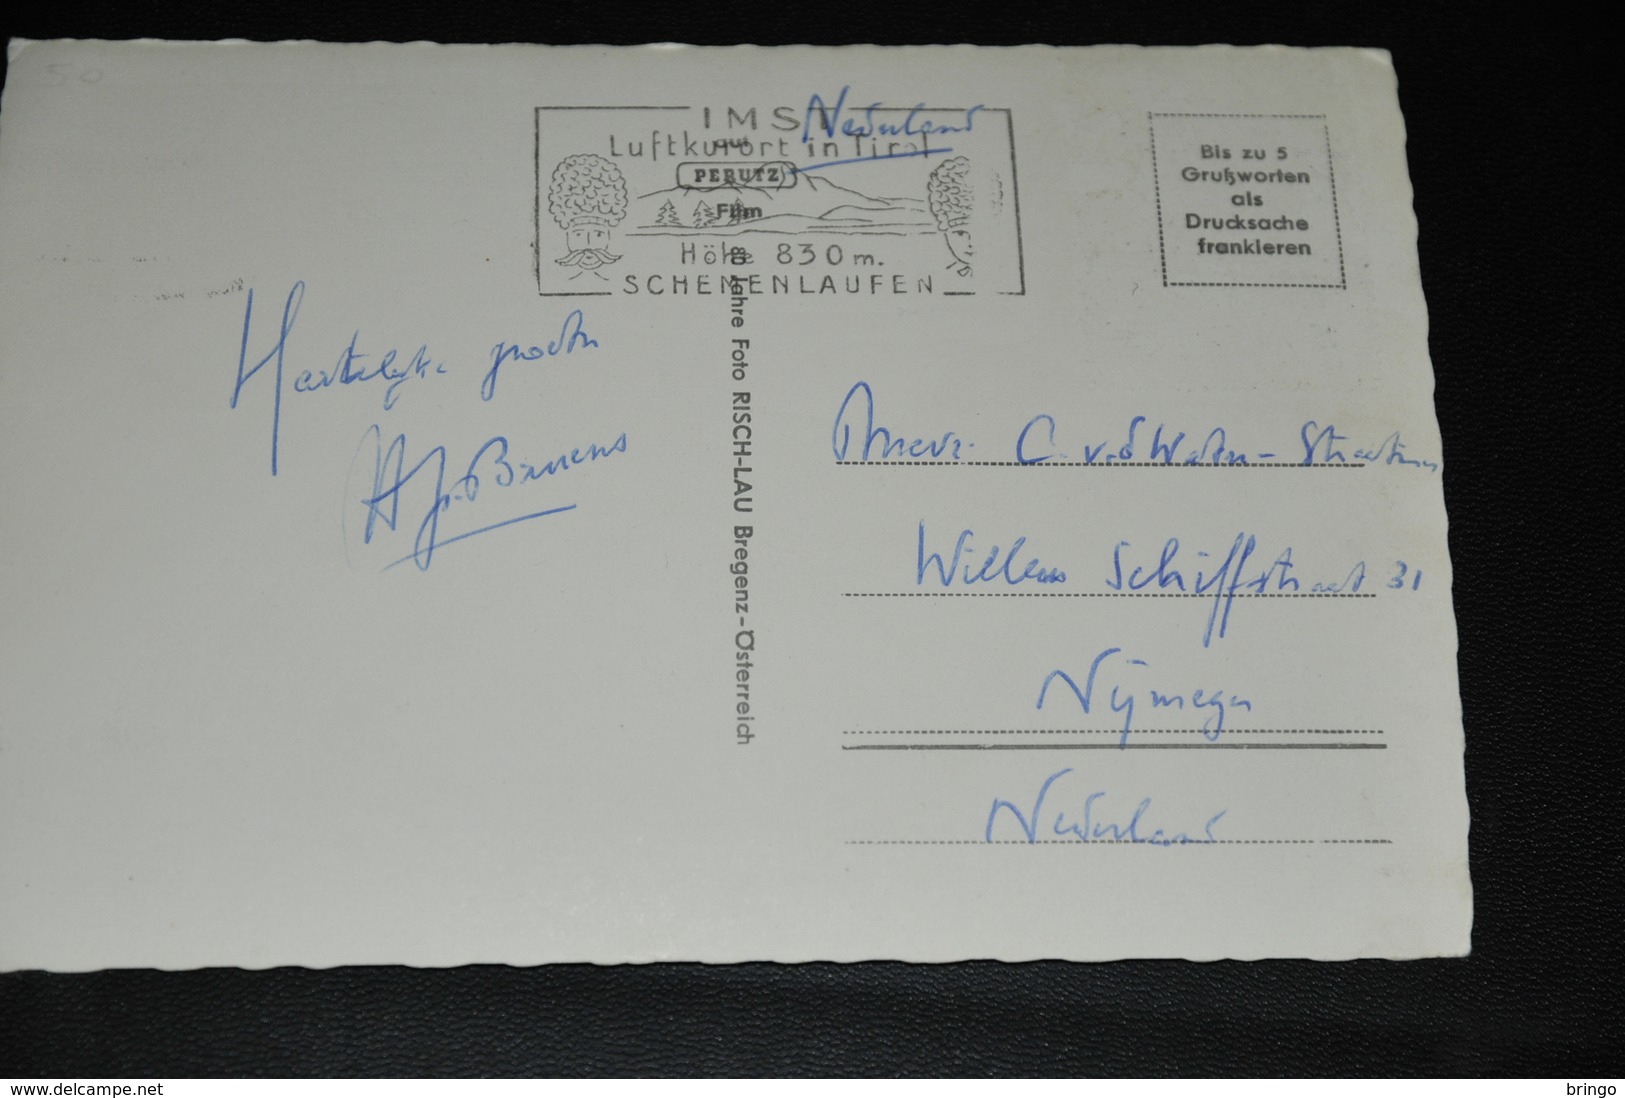 50
Nederland
IMST
Luftkurort in Tirol
auf
PERUTZ
Film
Höhe 830 m.
SCHEMENLAUFEN
Bis zu 5
Grußworten
als
Drucksache
frankieren
Hartelijke groeten
80 Jahre Foto RISCH-LAU Bregenz-Österreich
Mevr. C. v. d. Water - Straatman
Willem Schiffstraat 31
Nijmegen
Nederland
delcampe.net
bringo